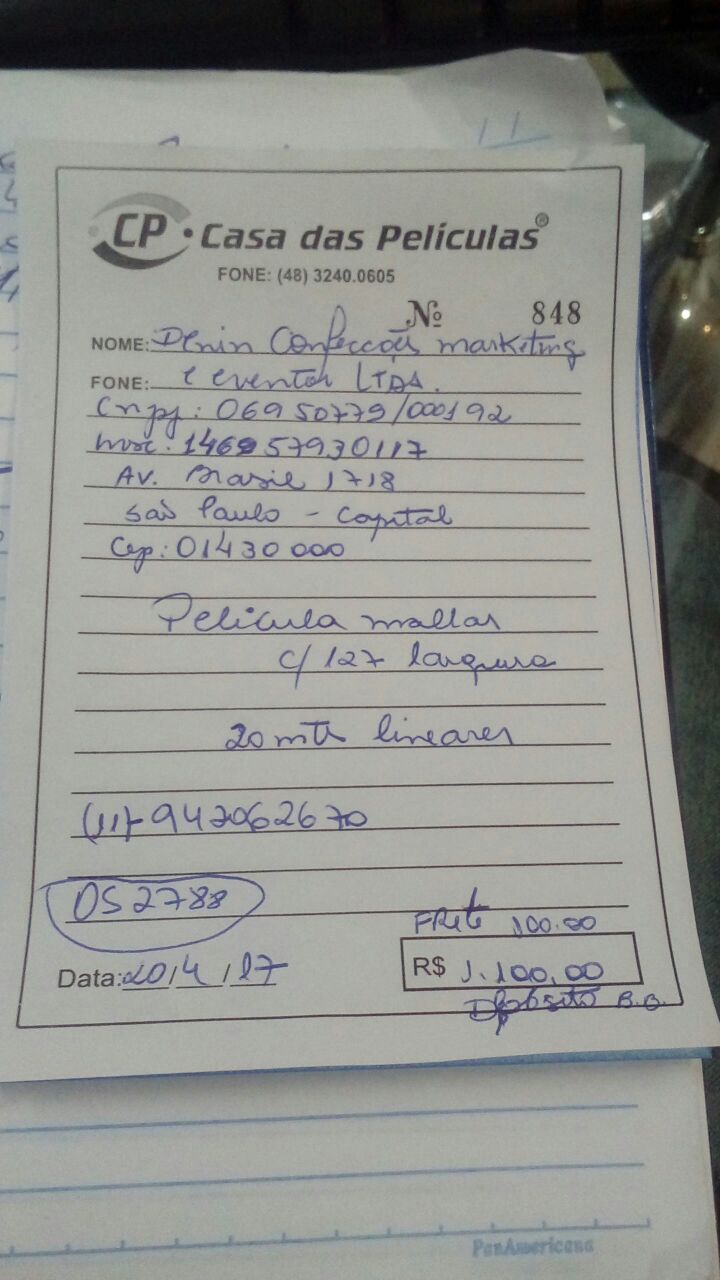 CP · Casa das Películas®
FONE: (48) 3240.0605
Nº 848
NOME: Denin Confecções marketing
FONE: e eventos LTDA.
Cnpj: 06950779/000192
Insc. 146957930117
Av. Brasil 1718
São Paulo - Capital
Cep: 01430000
Película mallas
c/ 127 largura
20 mts lineares
(11)-947062670
OS 2788
FRete 100.00
Data: 20/4/17
R$ 1.100,00
Depósito B.B.
PanAmericana